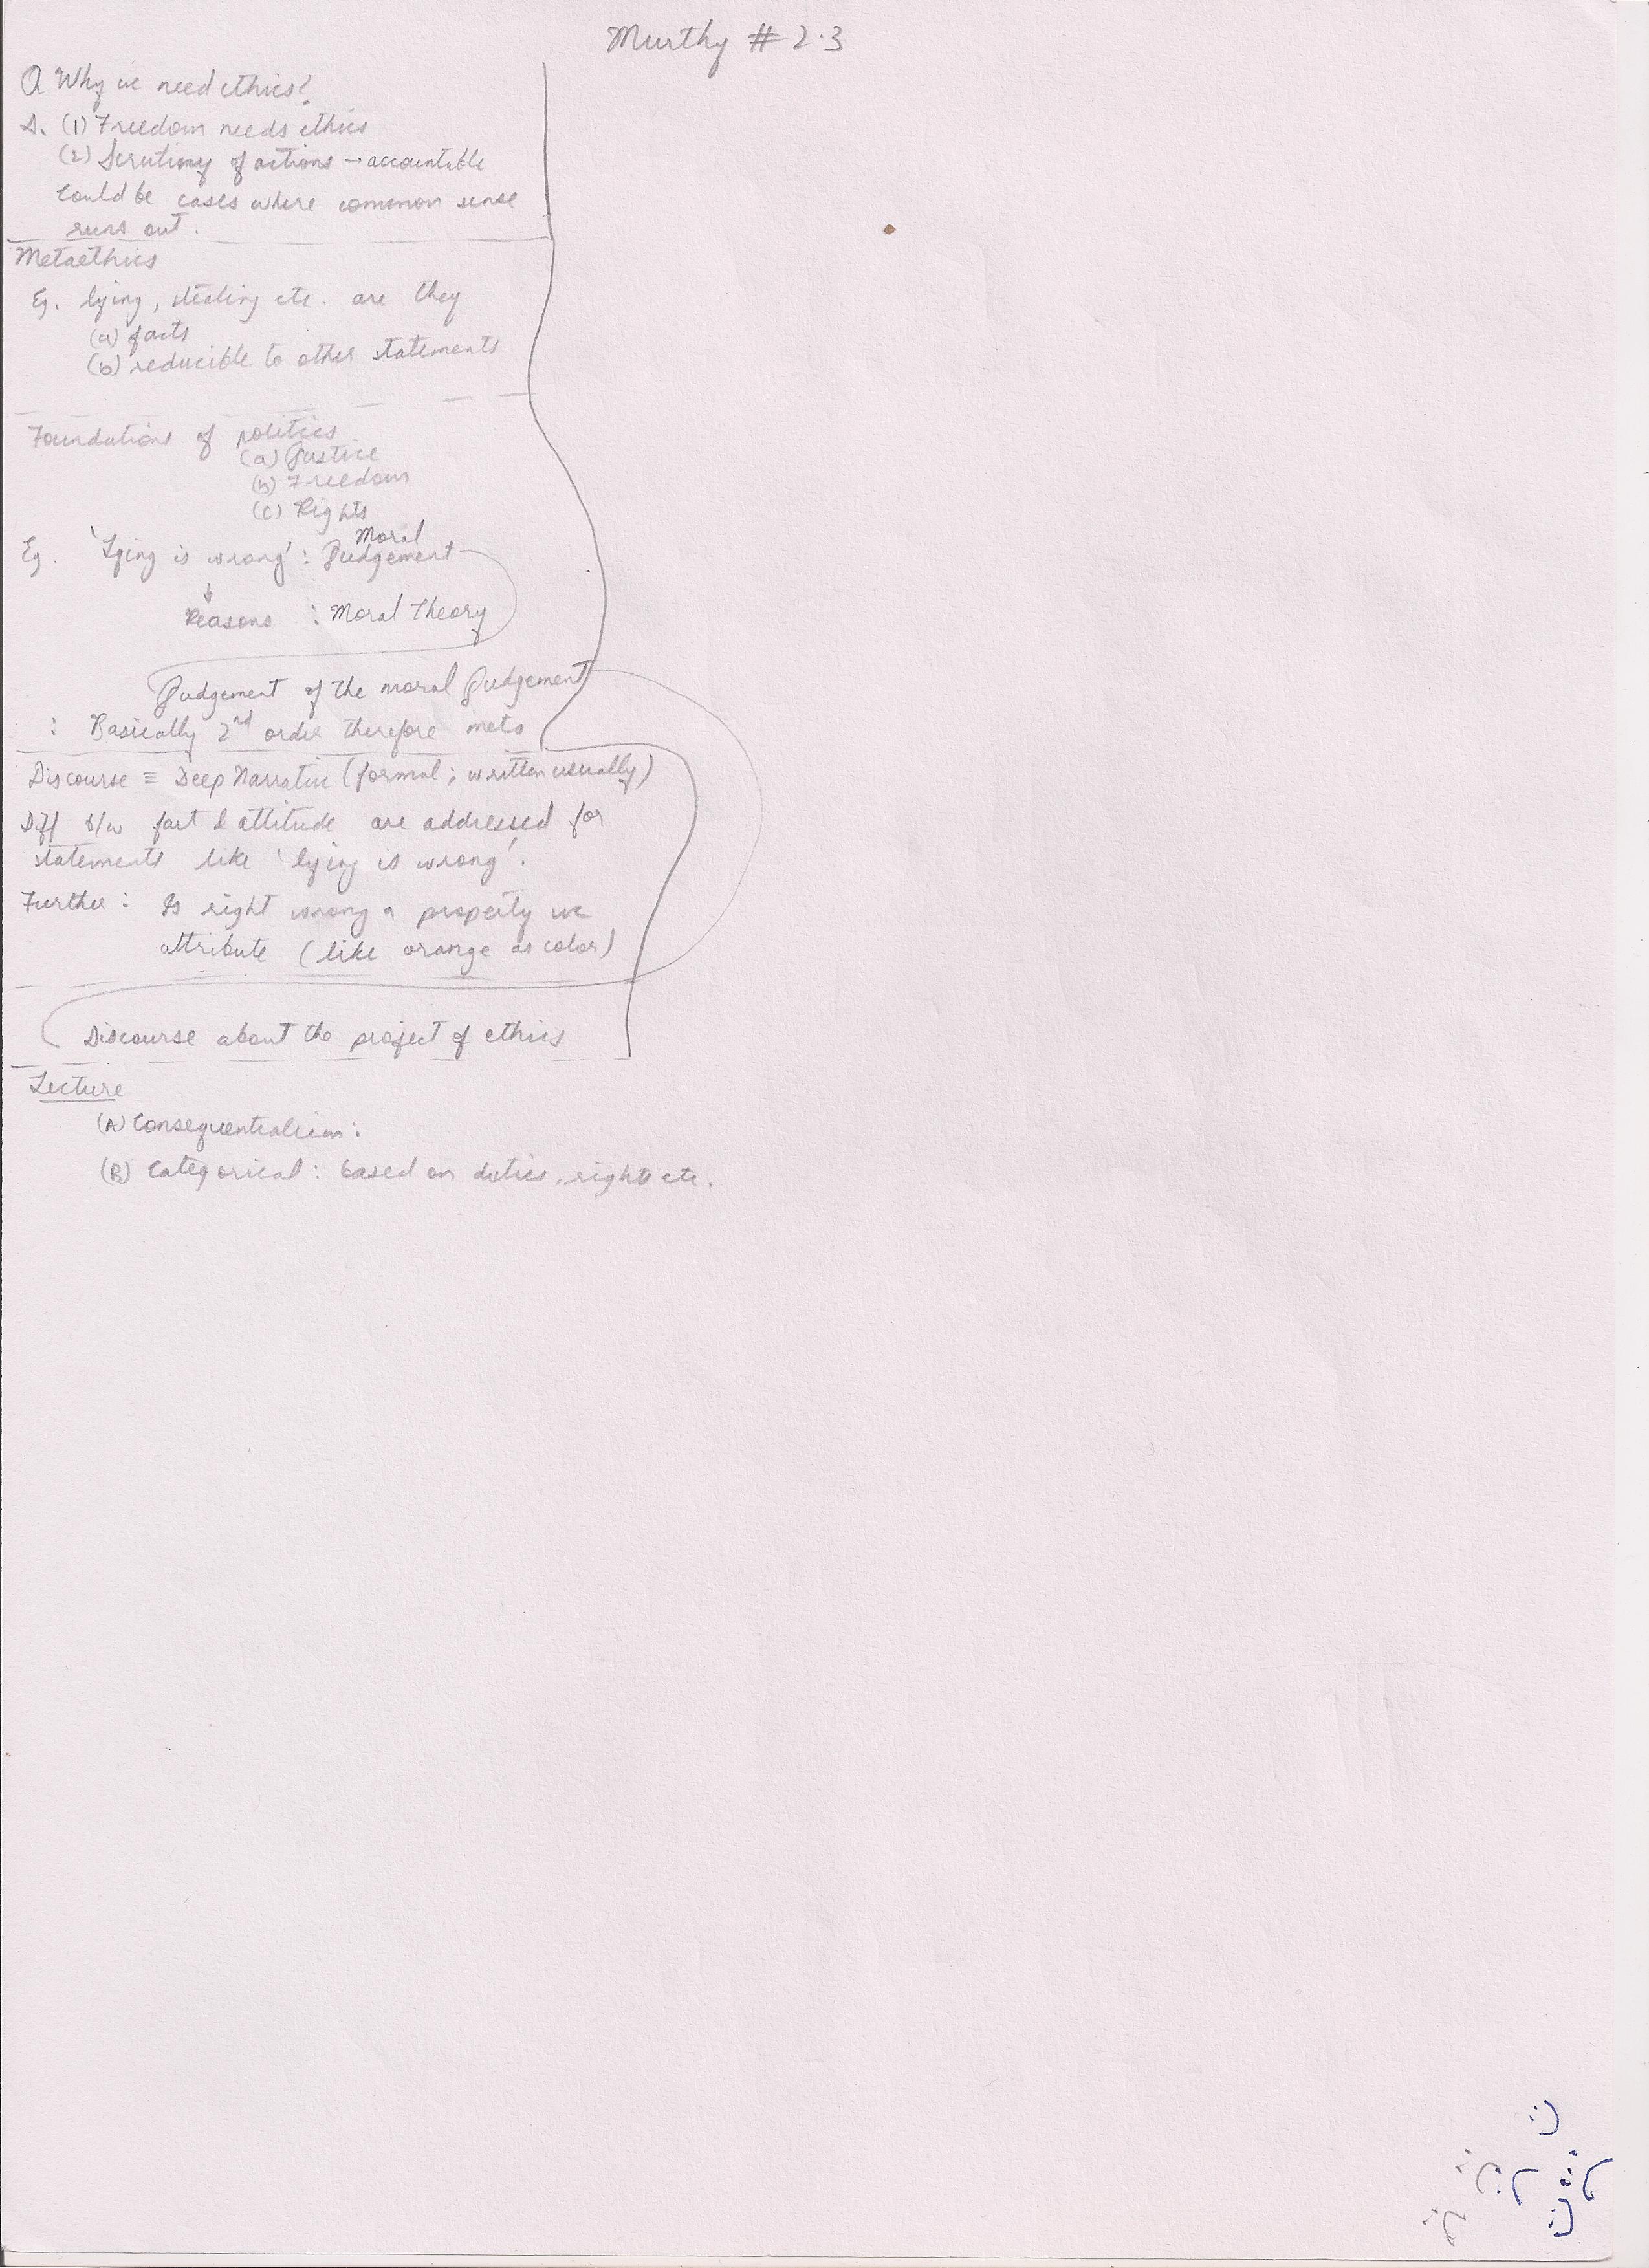 Murthy # 2.3
Q Why we need ethics?
A. (1) Freedom needs ethics
(2) Scrutiny of actions → accountable
Could be cases where common sense
runs out.
Metaethics
Eg. lying, stealing etc. are they
(a) facts
(b) reducible to other statements
Foundations of politics
(a) Justice
(b) Freedom
(c) Rights
Moral
Eg. 'Lying is wrong' : Judgement
↓
Reasons : Moral Theory
Judgement of the moral Judgement
: Basically 2nd order therefore meta
Discourse ≡ Deep Narrative (formal; written usually)
Diff b/w fact & attitude are addressed for
statements like 'lying is wrong'.
Further : Is right wrong a property we
attribute (like orange as color)
Discourse about the project of ethics
Lecture
(A) Consequentialism :
(B) Categorical : based on duties, rights etc.
:)
:(
:(
:(
:)
:(